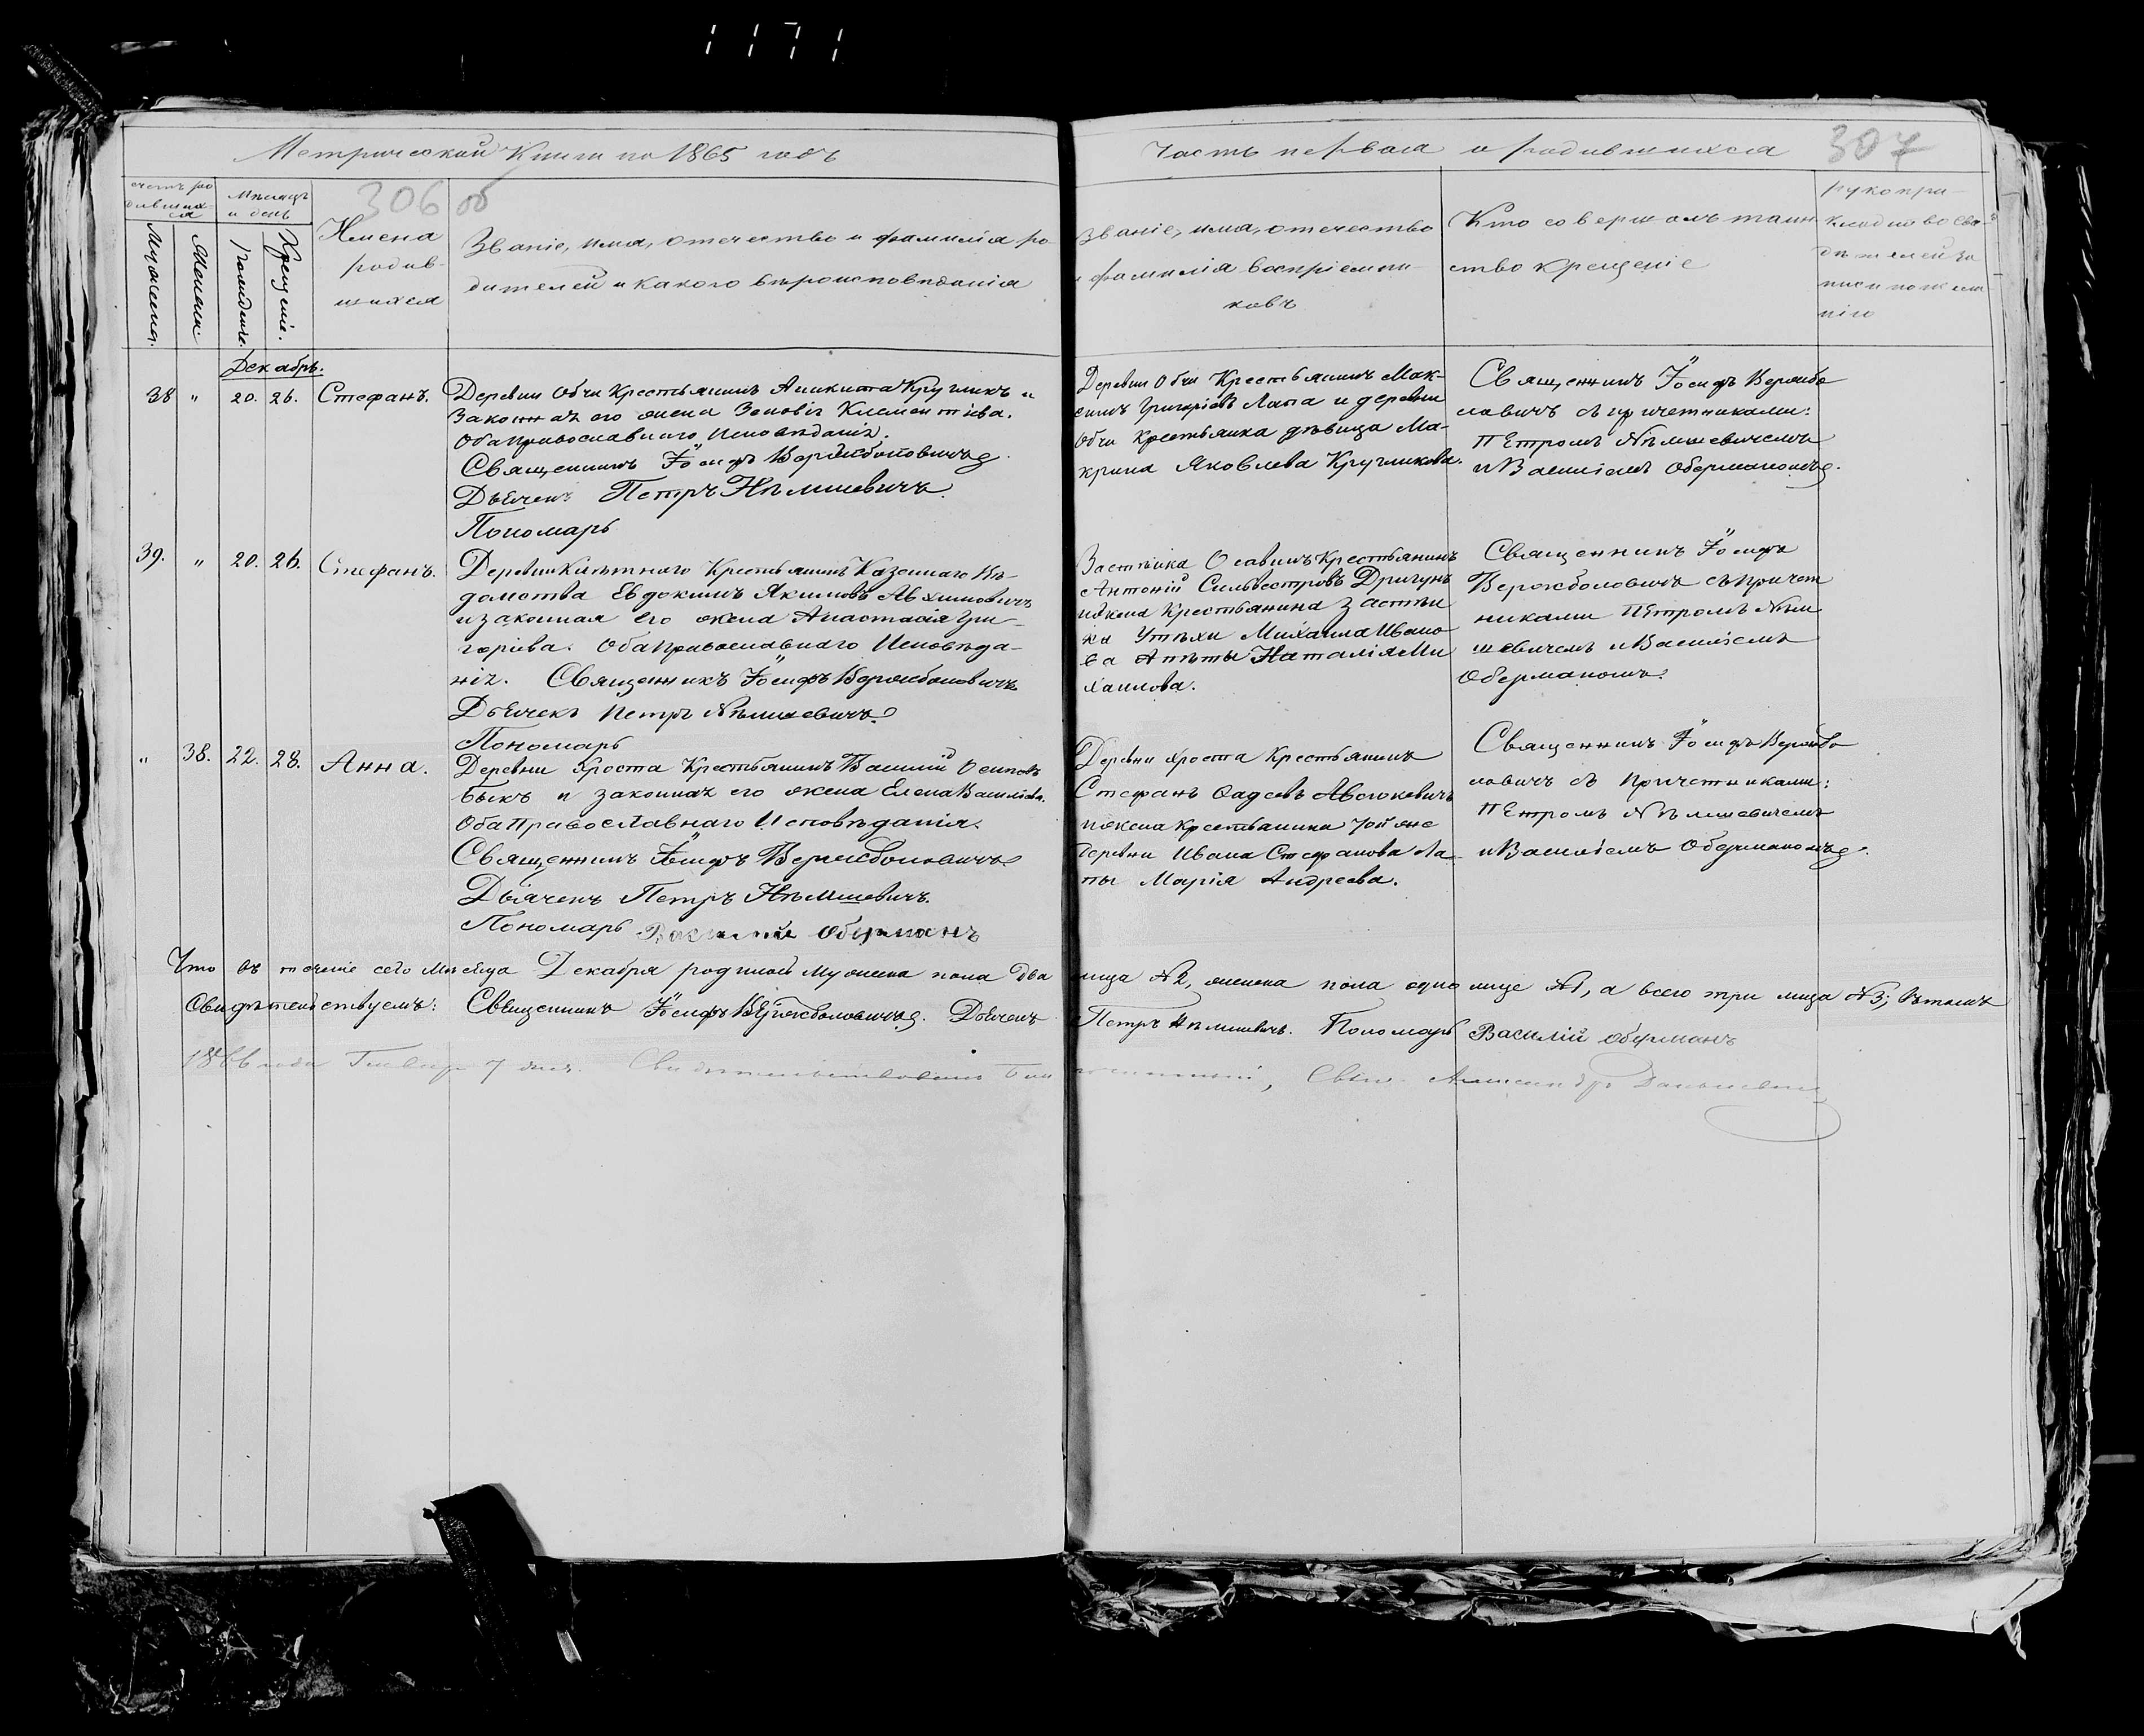 1171
Метрической Книги на 1865 годъ
Часть первая о родившихся
307
306 об
счетъ ро
дивших
ся
Мѣсяцъ
и день
Мужеска.
Женска.
Рожденіе.
Крещеніе.
Имена
родив-
шихся
Званіе, имя, отечество и фамилія ро-
дителей и какого вѣроисповѣданія
Званіе, имя, отечество
и фамилія воспріемни-
ковъ
Кто совершалъ таин
ство крещеніе
рукопри-
кладство сви-
дѣтелей за
писи по жела
нію
Декабрь.
38 " 20. 26. Стефанъ.
Деревни Обчи Крестьянинъ Аникита Кругликъ и
Законная его жена Зеновія Климентіева.
Оба Православнаго Исповѣданія.
Священникъ Іосифъ Вержболовичъ
Дьячекъ Петръ Нѣмшевичъ.
Пономарь
Деревни Обчи Крестьянинъ Мак-
симъ Григоріевъ Лапа и деревни
Обчи Крестьянка дѣвица Ма-
крина Яковлева Кругликова.
Священникъ Іосифъ Вержбо
ловичъ съ причетниками:
Петромъ Нѣмшевичемъ
и Василіемъ Оберманомъ.
39. " 20. 26. Стефанъ.
Деревни Крестьянинъ Казеннаго Вѣ-
домства Евдокимъ Якимовъ
и законная его жена Анастасія Гри-
горіева. Оба Православнаго Исповѣда-
нія. Священникъ Іосифъ Вержболовичъ
Дьячекъ Петръ Нѣмшевичъ
Пономарь
Застѣнка Крестьянинъ
Антоній Сильвестровъ Дригунъ
и жена Крестьянина Застѣн
ка Утѣхи Михаила Ивано
ва Наталія Ми
хаилова.
Священникъ Іосифъ
Вержболовичъ съ причет
никами Петромъ Нѣм
шевичемъ и Василіемъ
Оберманомъ.
" 38. 22. 28. Анна.
Деревни Хроста Крестьянинъ Василій Осиповъ
Быкъ и законная его жена Елена Васильева.
Оба Православнаго Исповѣданія.
Священникъ Іосифъ Вержболовичъ
Дьячекъ Петръ Нѣмшевичъ.
Пономарь Василій Оберманъ
Деревни Хроста Крестьянинъ
Стефанъ Фадеевъ
и жена Крестьянина той же
деревни Ивана Стефанова Ла-
пы Марія Андреева.
Священникъ Іосифъ Вержбо
ловичъ съ Причетниками:
Петромъ Нѣмшевичемъ
и Василіемъ Оберманомъ.
Что въ теченіе сего Мѣсяца Декабря родилось Мужеска пола два лица №2, женска пола одно лице №1, а всего три лица №3; въ томъ
Свидѣтельствуемъ: Священникъ Іосифъ Вержболовичъ. Дьячекъ Петръ Нѣмшевичъ. Пономарь Василій Оберманъ
1866 года Январ 7 дня. Свидѣтельствовалъ Благочинный, Свящ. Александръ